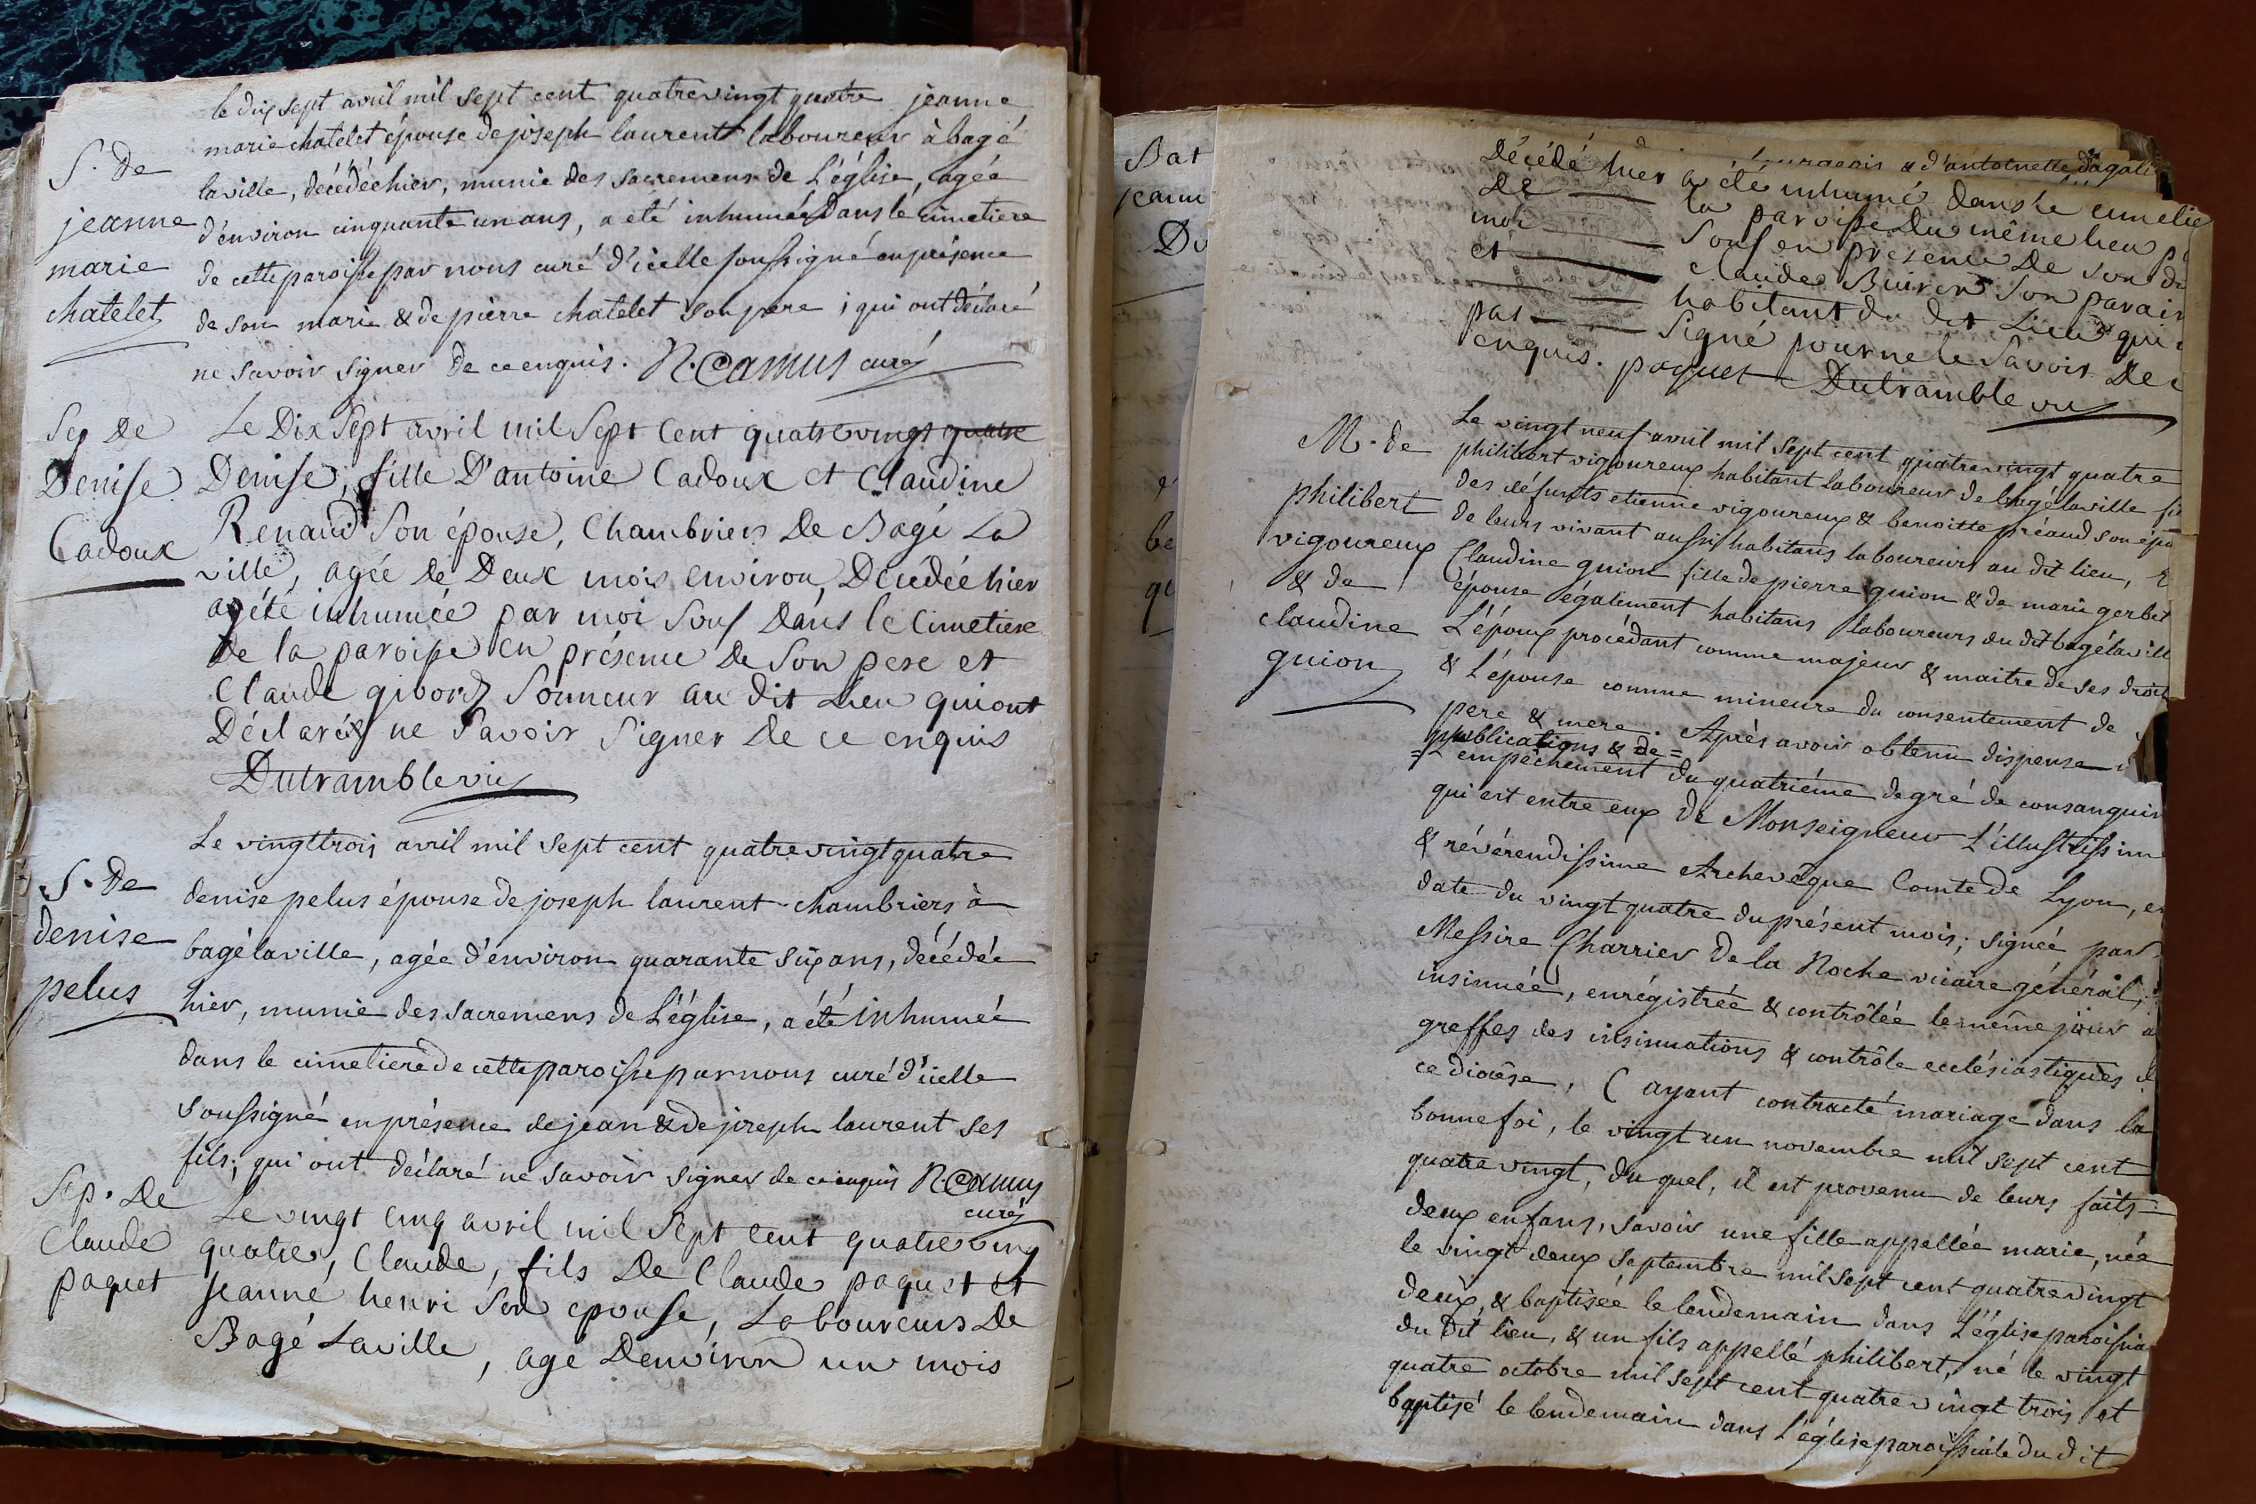 le dix sept avril mil sept cent quatre vingt quatre jeanne
marie chatelet épouse de joseph laurent laboureur à bagé
S. De
laville, décédée hier, munie des sacremens de L'église, agée
jeanne
d'environ cinquante un ans, a été inhumée dans le cimetiere
marie
de cette paroisse par nous curé d'icelle soussigné en présence
chatelet
de son marie & de pierre chatelet son pere ; qui ont déclaré
ne savoir signer de ce enquis. N. Camus curé
Sep De
Denise
Cadoux
Le Dix Sept avril mil Sept Cent quatre vingt quatre
Denise, fille D'antoine Cadoux et Claudine
Renaud Son épouse, Chambriers De Bagé La
ville, agée de Deux mois environ, Décédée hier
a été inhumée par moi Sous Dans le Cimetiere
De la paroisse en présence De Son pere et
Claude givord Sonneur au dit Lieu qui ont
Déclarés ne Savoir Signer De ce enquis
Dutramble vic
S. De
denise
pelus
Le vingt trois avril mil sept cent quatre vingt quatre
denise pelus épouse de joseph laurent chambriers à
bagé laville, agée d'environ quarante six ans, décédée
hier, munie des sacremens de L'église, a été inhumée
dans le cimetiere de cette paroisse par nous curé d'icelle
soussigné en présence de jean & de joseph laurent ses
fils ; qui ont déclaré ne savoir signer de ce enquis N. Camus
curé
Sep. De
Claude
paquet
Le vingt cinq avril mil Sept Cent quatre ving
quatre, Claude, fils De Claude paquet et
Jeanne henri Son epouse, Laboureurs De
Bagé Laville, age Denviron un mois
Bat
jeann
Du
& d'antoinette Dagali
Décédé hier a été inhumé dans le cimetie
De la paroisse Du même lieu p
moi Sous en présence De son
et Claude Buiron Son parain
habitant du dit Lieu qui
pas Signé pour ne le Savoir De
enquis. paquet Dutramble vic
M. de
philibert
vigoureux
& de
claudine
guion
Le vingt neuf avril mil sept cent quatre vingt quatre
philibert vigoureux habitant laboureur de bagé laville fi
des défunts etienne vigoureux & benoitte préaud son épo
de leurs vivant aussi habitans laboureurs au dit lieu, &
Claudine guion fille de pierre guion & de marie gerbet
épouse également habitans laboureurs du dit bagé lavill
L'époux procédant comme majeur & maitre de ses droit
& L'épouse comme mineure du consentement de
pere & mere. Après avoir obtenu dispense
publications & de =
= L'empêchement du quatriéme degré de consanguin
qui est entre eux de Monseigneur L'illustrissim
& révérendissime Archevêque Comte de Lyon, en
date du vingt quatre du présent mois ; signée par
Messire Charrier de la Roche vicaire général,
insinuée, enrégistrée & contrôlée le même jour a
greffes des insinuations & contrôle ecclésiastiques
ce diocèse, ( ayant contracté mariage dans la
bonne foi, le vingt un novembre mil sept cent
quatre vingt, du quel, il est provenu de leurs faits =
deux enfans, savoir une fille appellée marie, née
le vingt deux septembre mil sept cent quatre vingt
deux, & baptisée le lendemain dans L'église paroissia
du dit lieu, & un fils appellé philibert, né le vingt
quatre octobre mil sept cent quatre vingt trois et
baptisé le lendemain dans L'église paroissiale du dit